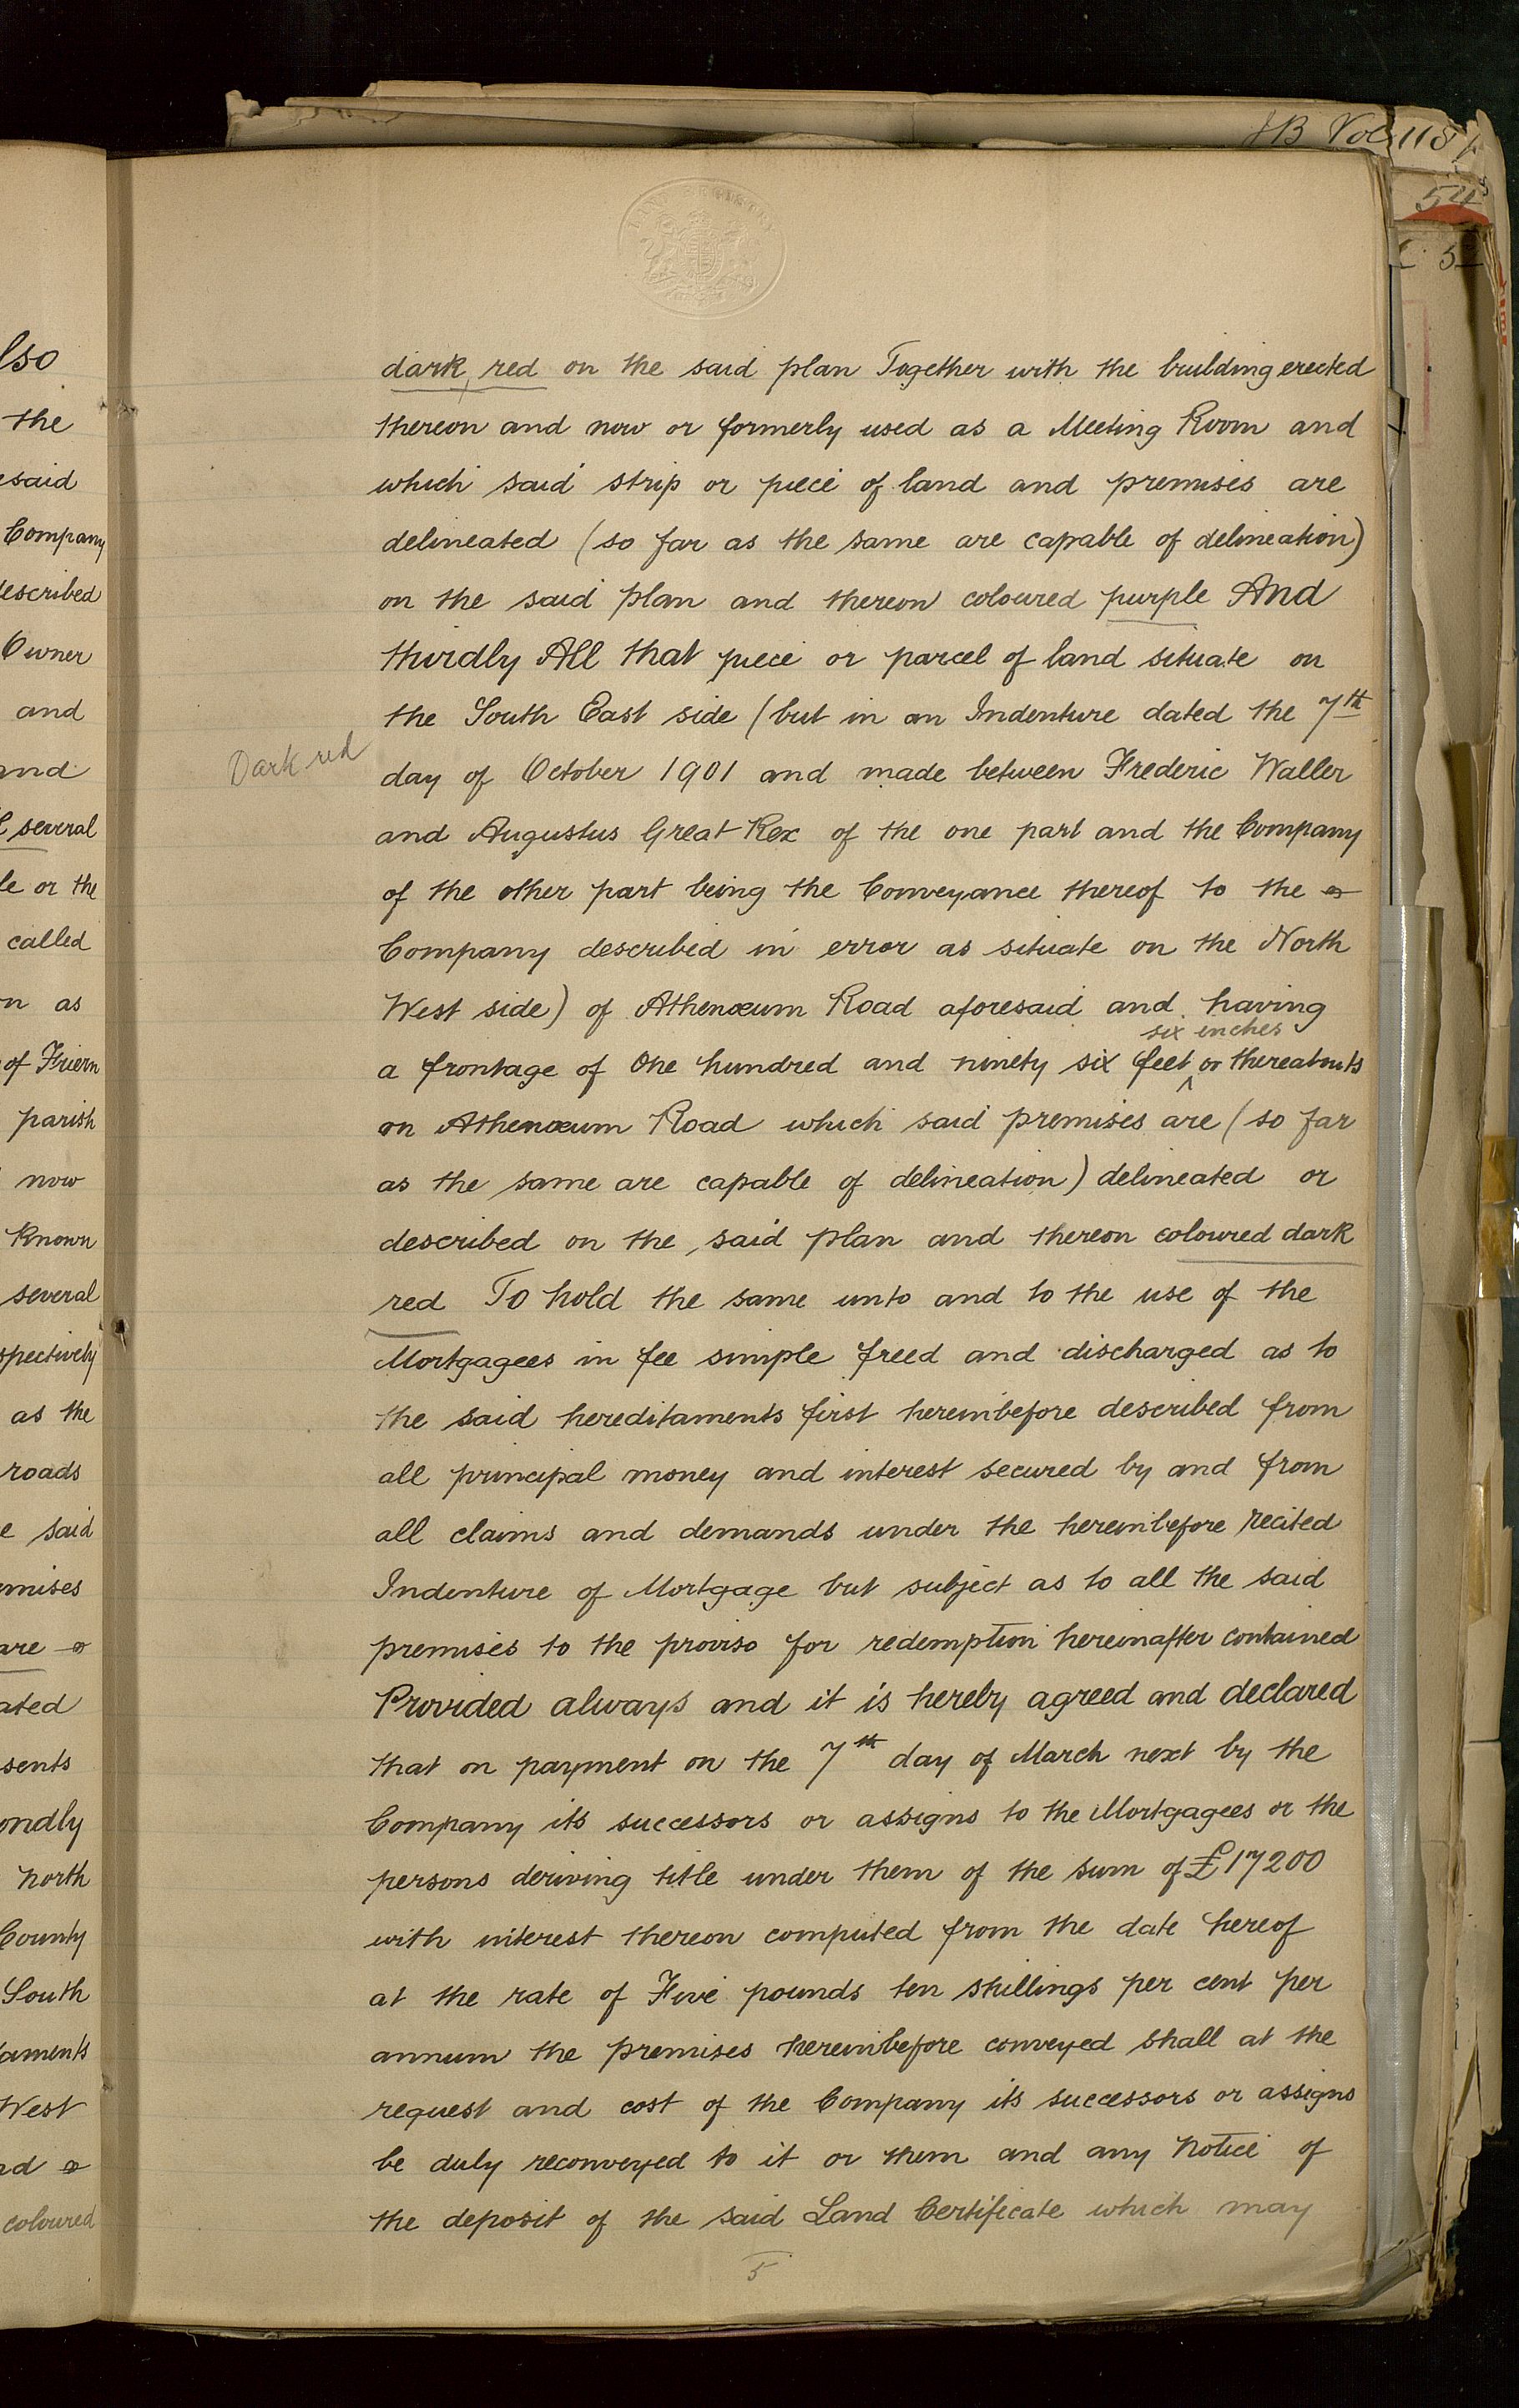 JB Vol 118
54
C. 5
lso
the
esaid
Company
described
Owner
and
and
several
le or the
called
n as
of Friern
parish
now
Known
several
spectively
as the
roads
e said
emises
are
ated
sents
ondly
North
County
South
taments
West
nd
coloured
dark red on the said plan Together with the building erected
thereon and now or formerly used as a Meeting Room and
which said strip or piece of land and premises are
delineated (so far as the same are capable of delineation)
on the said plan and thereon coloured purple And
thirdly All that piece or parcel of land situate on
the South East side (but in an Indenture dated the 7th
Dark red
day of October 1901 and made between Frederic Waller
and Augustus Great Rex of the one part and the Company
of the other part being the Conveyance thereof to the
Company described in error as situate on the North
West side) of Athenæum Road aforesaid and having
six inches
a frontage of One hundred and ninety six feet ^ or thereabouts
on Athenæum Road which said premises are (so far
as the same are capable of delineation) delineated or
described on the said plan and thereon coloured dark
red To hold the same unto and to the use of the
Mortgagees in fee simple freed and discharged as to
the said hereditaments first hereinbefore described from
all principal money and interest secured by and from
all claims and demands under the hereinbefore recited
Indenture of Mortgage but subject as to all the said
premises to the proviso for redemption hereinafter contained
Provided always and it is hereby agreed and declared
that on payment on the 7th day of March next by the
Company its successors or assigns to the Mortgagees or the
persons deriving title under them of the sum of £17200
with interest thereon computed from the date hereof
at the rate of Five pounds ten shillings per cent per
annum the premises hereinbefore conveyed shall at the
request and cost of the Company its successors or assigns
be duly reconveyed to it or them and any notice of
the deposit of the said Land Certificate which may
5